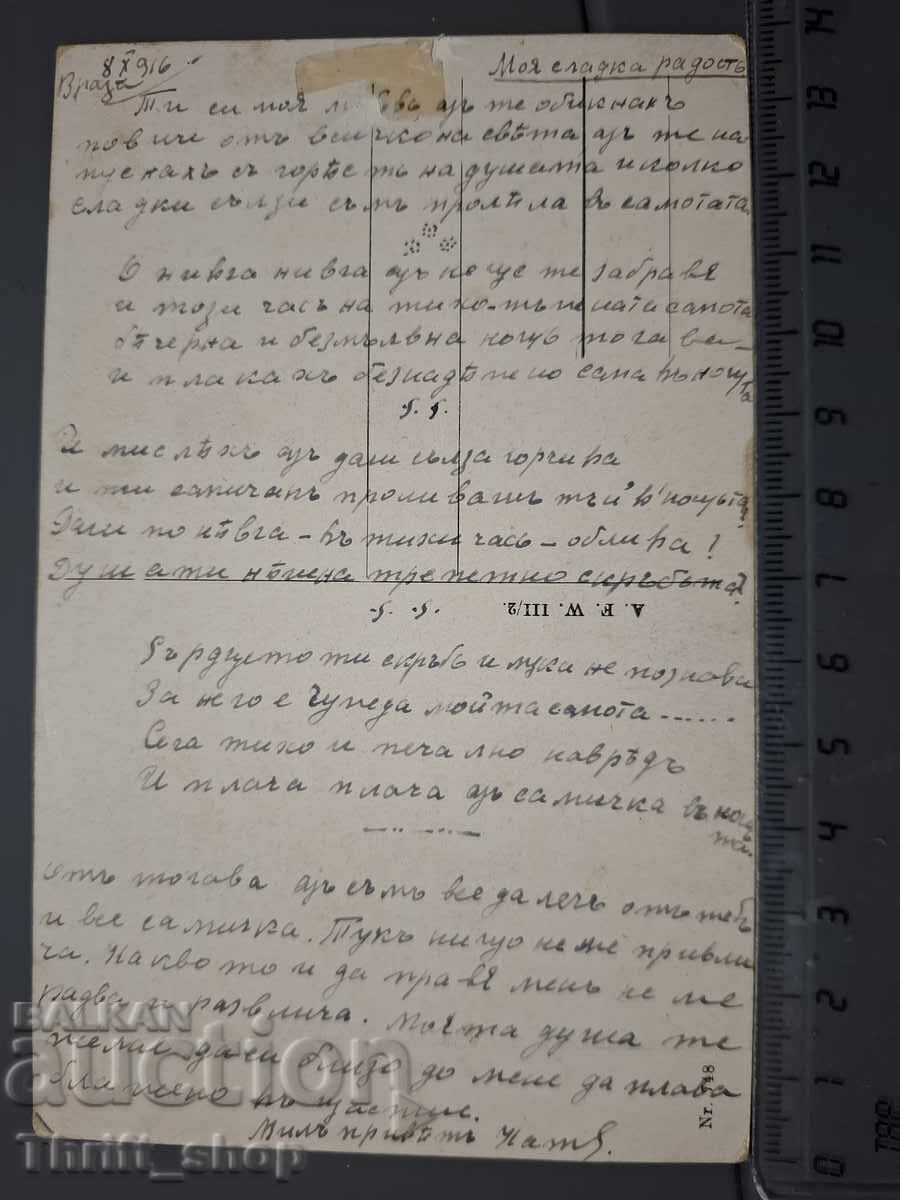 8 X 916
Враца
Моя сладка радость
Ти си моя любовь, азъ те обикнахъ
повече отъ всичко на свѣта азъ те на
пуснахъ съ горѣсть на душата и колко
сладки сълзи съмъ пролѣла въ самотата.
О нивга нивга азъ не ще те забравя
и този часъ на тихо-тъмната самота
вѣчерна и безмълвна нощь тогава
и плакахъ безнадѣжно сама въ нощьта
И мислѣхъ азъ дали сълза горчива
и ти самичакъ проливашъ тъй в' нощьта?
Дали понѣвга - въ тихи часъ - облива!
Душата ти нѣжна трепетно скръбьта?
A. F. W. III/2.
Сърдцето ти скръбь и мука не познава
За него е чужда мойта самота ......
Сега тихо и печално навредъ
И плача плача азъ самичка въ нощь
та.
Отъ тогава азъ съмъ все далечъ отъ тебъ
и все самичка. Тукъ нищо не ме привли
ча. Каквото и да правя менъ не ме
радва и развлича. Моята душа те
желае да си близо до мене да плава
блажено въ щастие.
Милъ привѣтъ
Nr. 748
BALKAN
auction
Thrift_shop
0 1 2 3 4 5 6 7 8 9 10 11 12 13 14